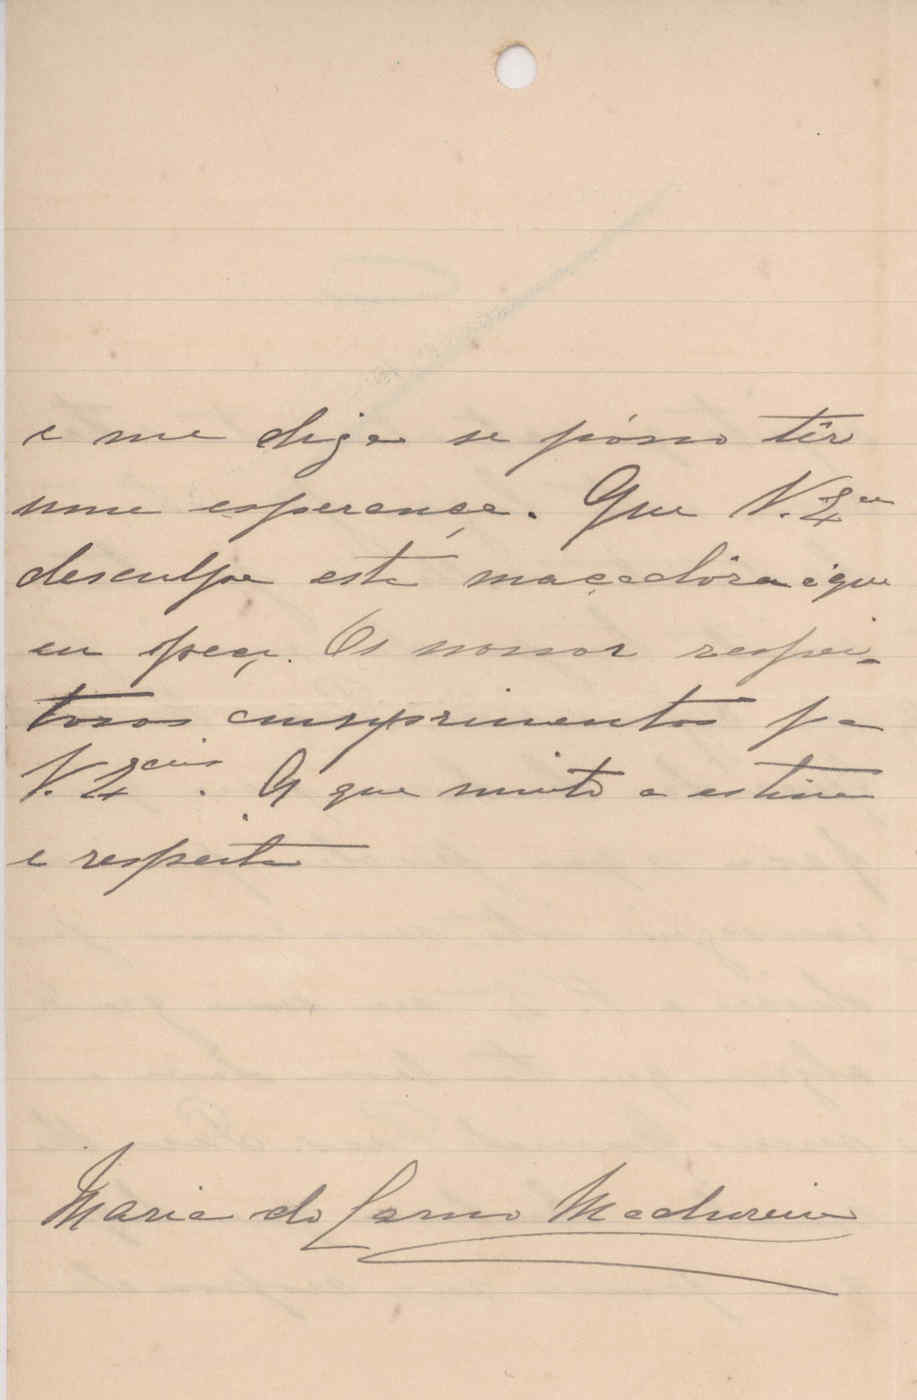 e me diga se pósso têr
uma esperança. Que V. Eª
desculpe esta maçadôra é que
eu peço. Os nossos respei-
tosos cumprimentos pª
V. Eªcias. A que muito a estima
e respeita
Maria do Carmo Madureira